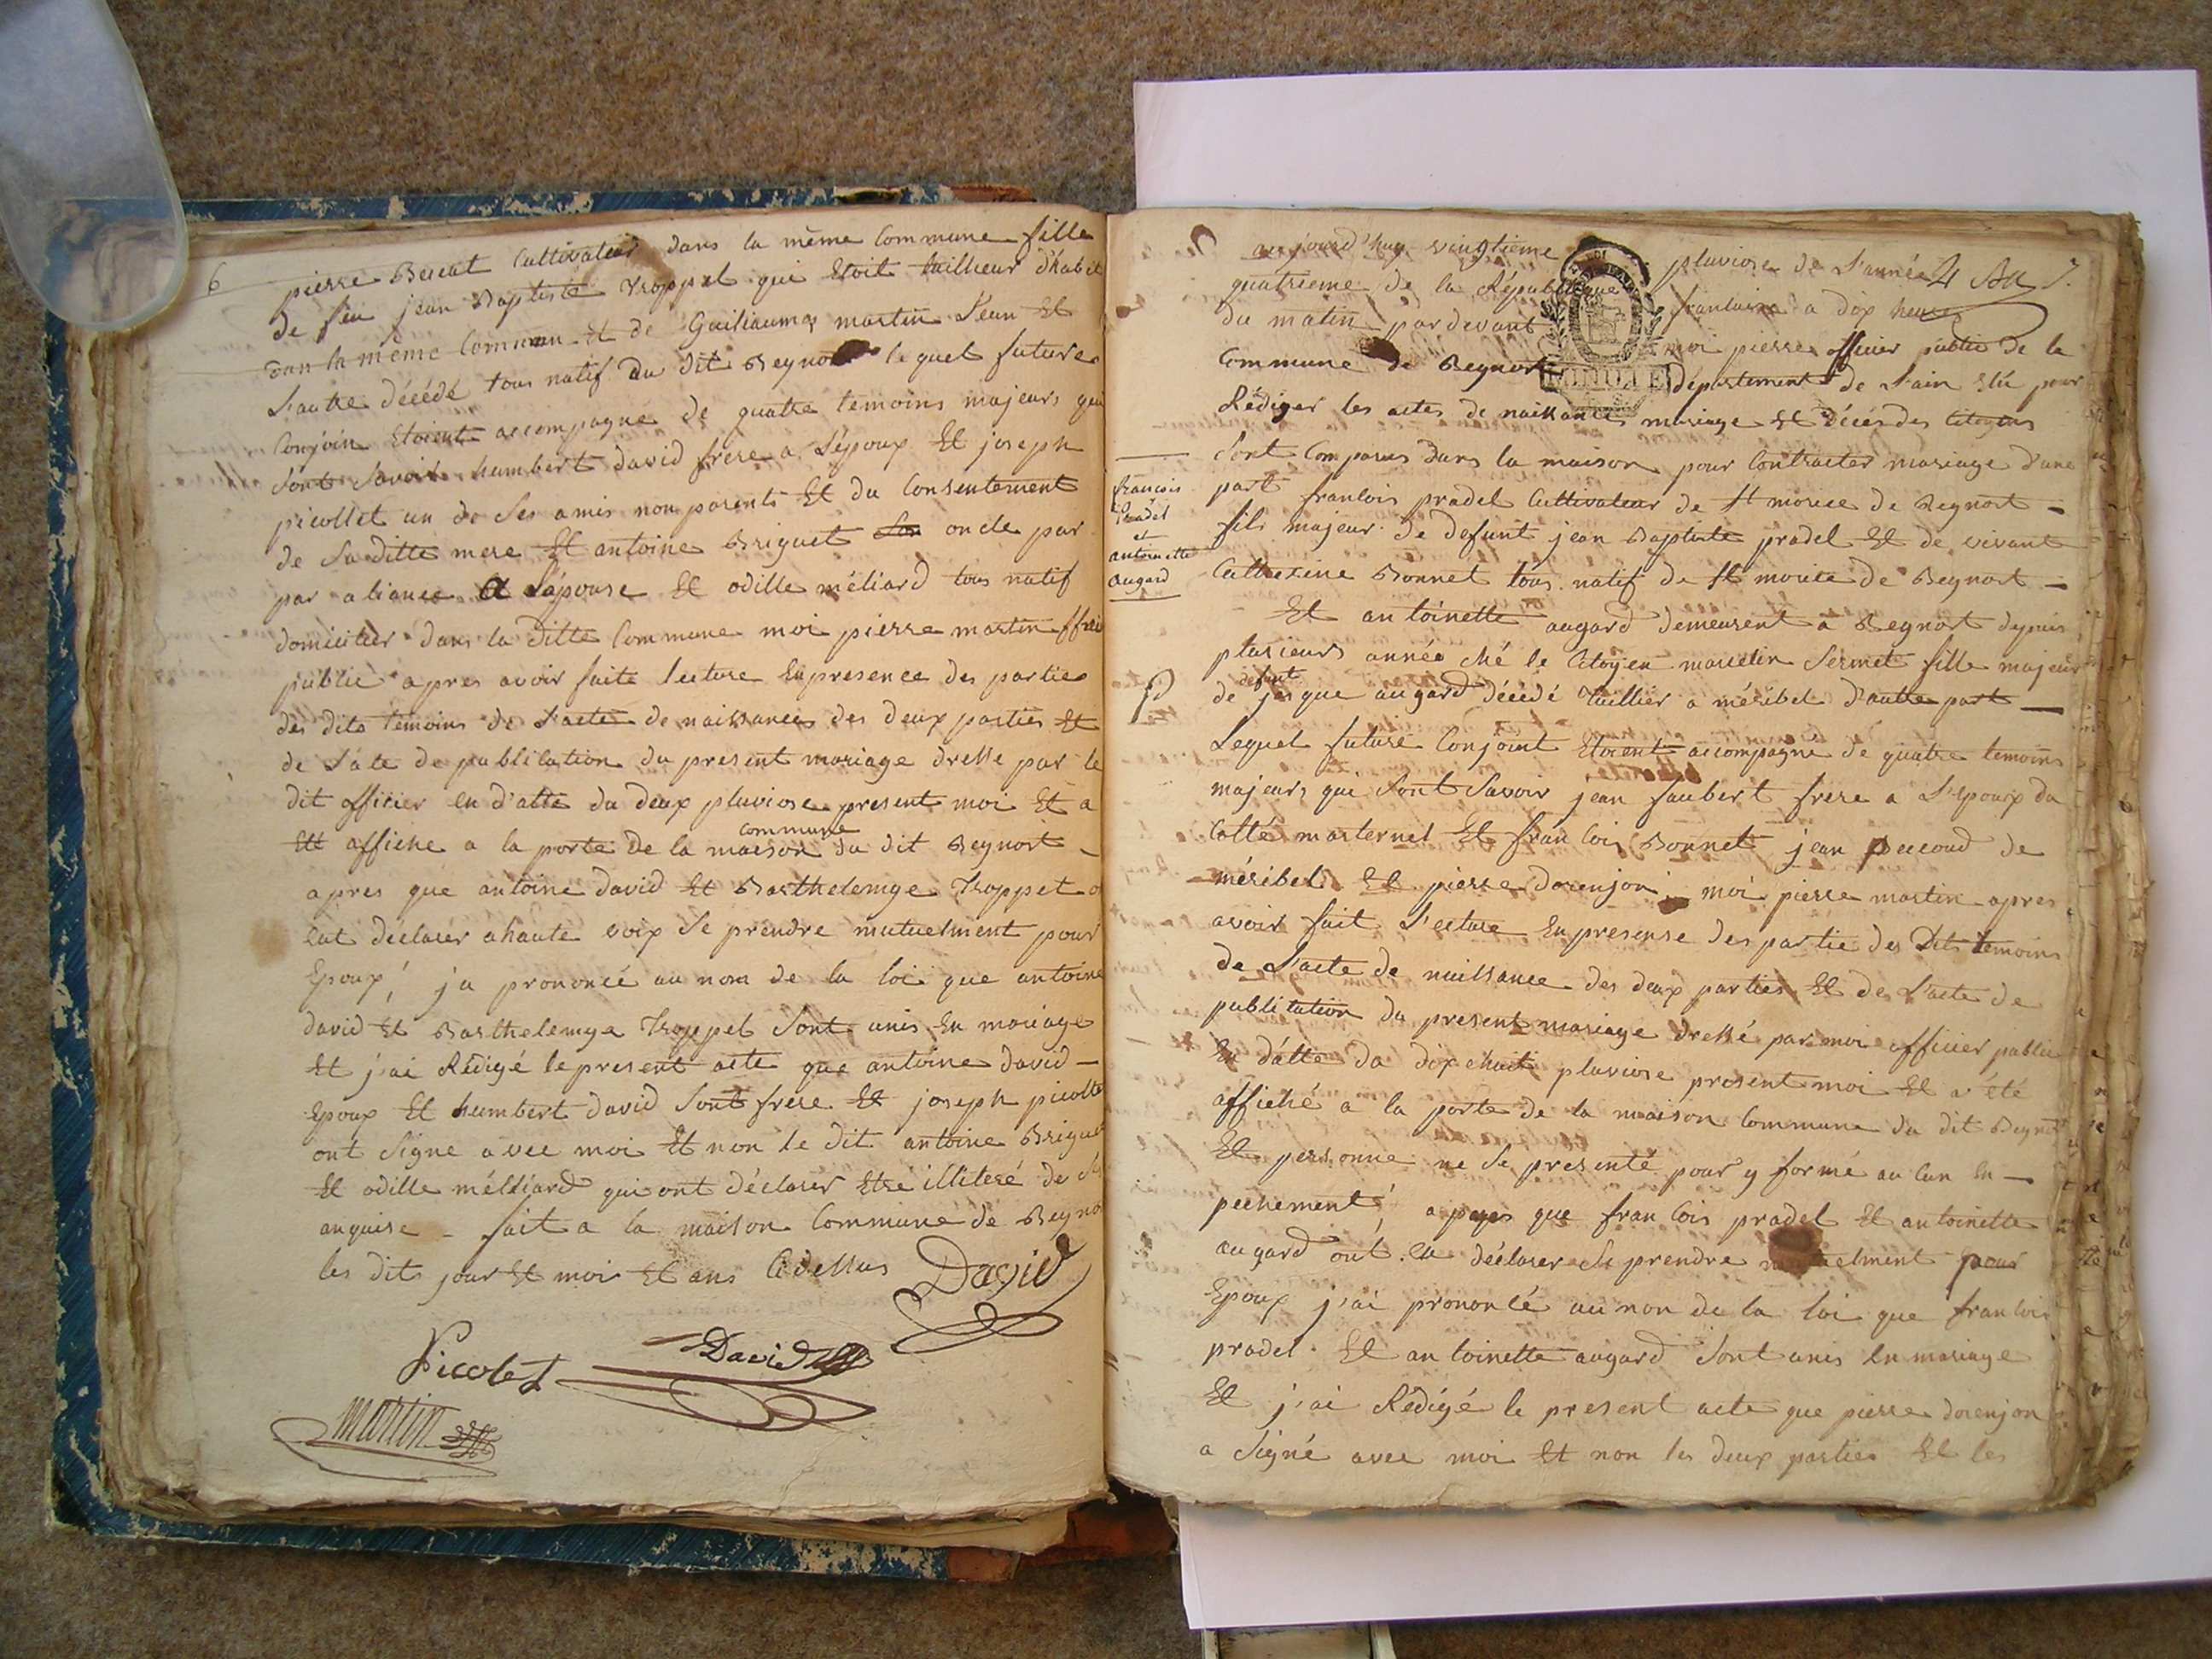 6
pierre Benoit Cultivateur dans la même Commune fille
de feu jean Baptiste Troppet qui Etoit tailleur d'habit
dans la même Commun Et de Guiliaumaz martin L'eun Et
L'autre décédé tous natif du dit Beynost lequel future
Conjoin Etoient accompagné de quatre temoins majeurs qui
Sont Savoir humbert david frere a L'époux Et joseph
picollet un de Ses amis non parents Et du Consentement
de Sa ditte mere Et antoine Briguet oncle par
par aliance a L'épouse Et odille méliard tous natif
domicilier dans la ditte Commune moi pierre martin offici
public apres avoir faite lecture En presence des parties
des dits temoins de L'acte de naissances des deux parties Et
de L'ate de publication du present mariage dressé par le
dit officier en d'atte du deux pluviose present moi Et a
Ett affiche a la porte de la maison commune du dit Beynost -
apres que antoine david Et Barthelemye Troppet o
eut déclarer a haute voix Se prendre mutuelment pour
Epoux, ja prononcé au nom de la loi que antoine
david Et Barthelemye Troppet Sont unis En mariage
Et j'ai Rédigé le present acte que antoine david -
Epoux Et humbert david Sont frere Et joseph picolle
ont Signe avec moi Et non le dit antoine Brigue
Et odille mélliard qui ont déclarer Etre illiteré de
anquise - fait a la maison Commune de Beyno
les dits jour Et moi Et ans Cidessus David
Picolet David
martin
4 An
7.
aujourd'huy vingtieme pluviose de L'année
quatrieme de la République francaise a dix heures
du matin par devant moi pierre officier public de la
Commune de Beynost département de L'ain Elü pour
Rédiger les actes de naissance mariage Et décés des Citoyens
Sont Comparus dans la maison pour Contracter mariage d'une
part francois pradel Cultivateur de St morice de Beynost -
fils majeur de defunt jean Baptiste pradel Et de vivante
Catherine Bonnet tous natif de St morice de Beynost -
francois
Pradel
et
antoinette
augard
Et antoinette augard demeurent a Beynost depuis
plusieurs année ché le Citoyen marcelin Sermet fille majeur
de defunt jasque augard décédé tuillier a méribel d'autre part -
Lequel future Conjoint Etoient accompagné de quatre temoins
majeurs qui Sont Savoir jean faubert frere a L'Epoux du
Cotté marternel Et francois Bonnet jean peccoud de
méribel Et pierre dorenjon, moi pierre martin apres
avoir fait L'ecture En presense des partie des Dits temoins
de L'acte de naissance des deux parties Et de L'acte de
publication du present mariage dressé par moi officier public
En d'atte du dix e huit pluviose present moi Et a été
affiché a la porte de la maison Commune du dit Beyno
Et personne ne Se presenté pour y formé au Cun En -
pechement, apres que francois pradel Et antoinette
augard ont eu déclarer Se prendre mutuelment pour
Epoux j'ai prononcé au non de la loi que francois
pradel Et antoinette augard Sont unis En mariage
Et j'ai Rédigé le present acte que pierre dorenjon
a Signé avec moi Et non les deux parties Et les